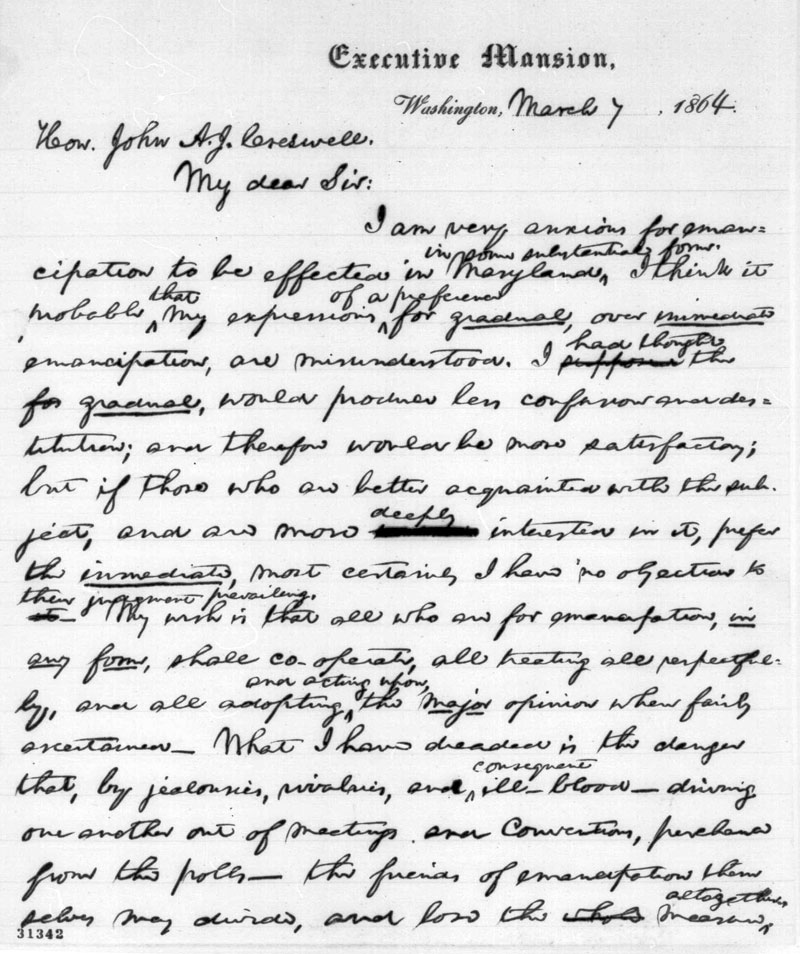 Executive Mansion,
Washington, March 7, 1864.
Hon. John A. J. Creswell.
My dear Sir:
I am very anxious for eman=
in some substantial form.
cipation to be effected in Maryland, I think it
that of a preference
probable my expressions for gradual, over immediate
had thought
emancipation, are misunderstood. I suppose the
for gradual, would produce less confusion and des=
titution; and therefore would be more satisfactory;
but if those who are better acquainted with the sub-
deeply
ject, and are more interested in it, prefer
the immediate, most certainly I have no objection to
their judgment prevailing.
it— My wish is that all who are for emancipation, in
any form, shall co-operate, all treating all respectful-
and acting upon,
ly, and all adopting, the major opinion when fairly
ascertained— What I have dreaded is the danger
consequent
that, by jealousies, rivalries, and, ill-blood— driving
one another out of meetings and Conventions, perchance
from the polls— the friends of emancipation them
altogether
selves may divide, and lose the whole measure,
31342